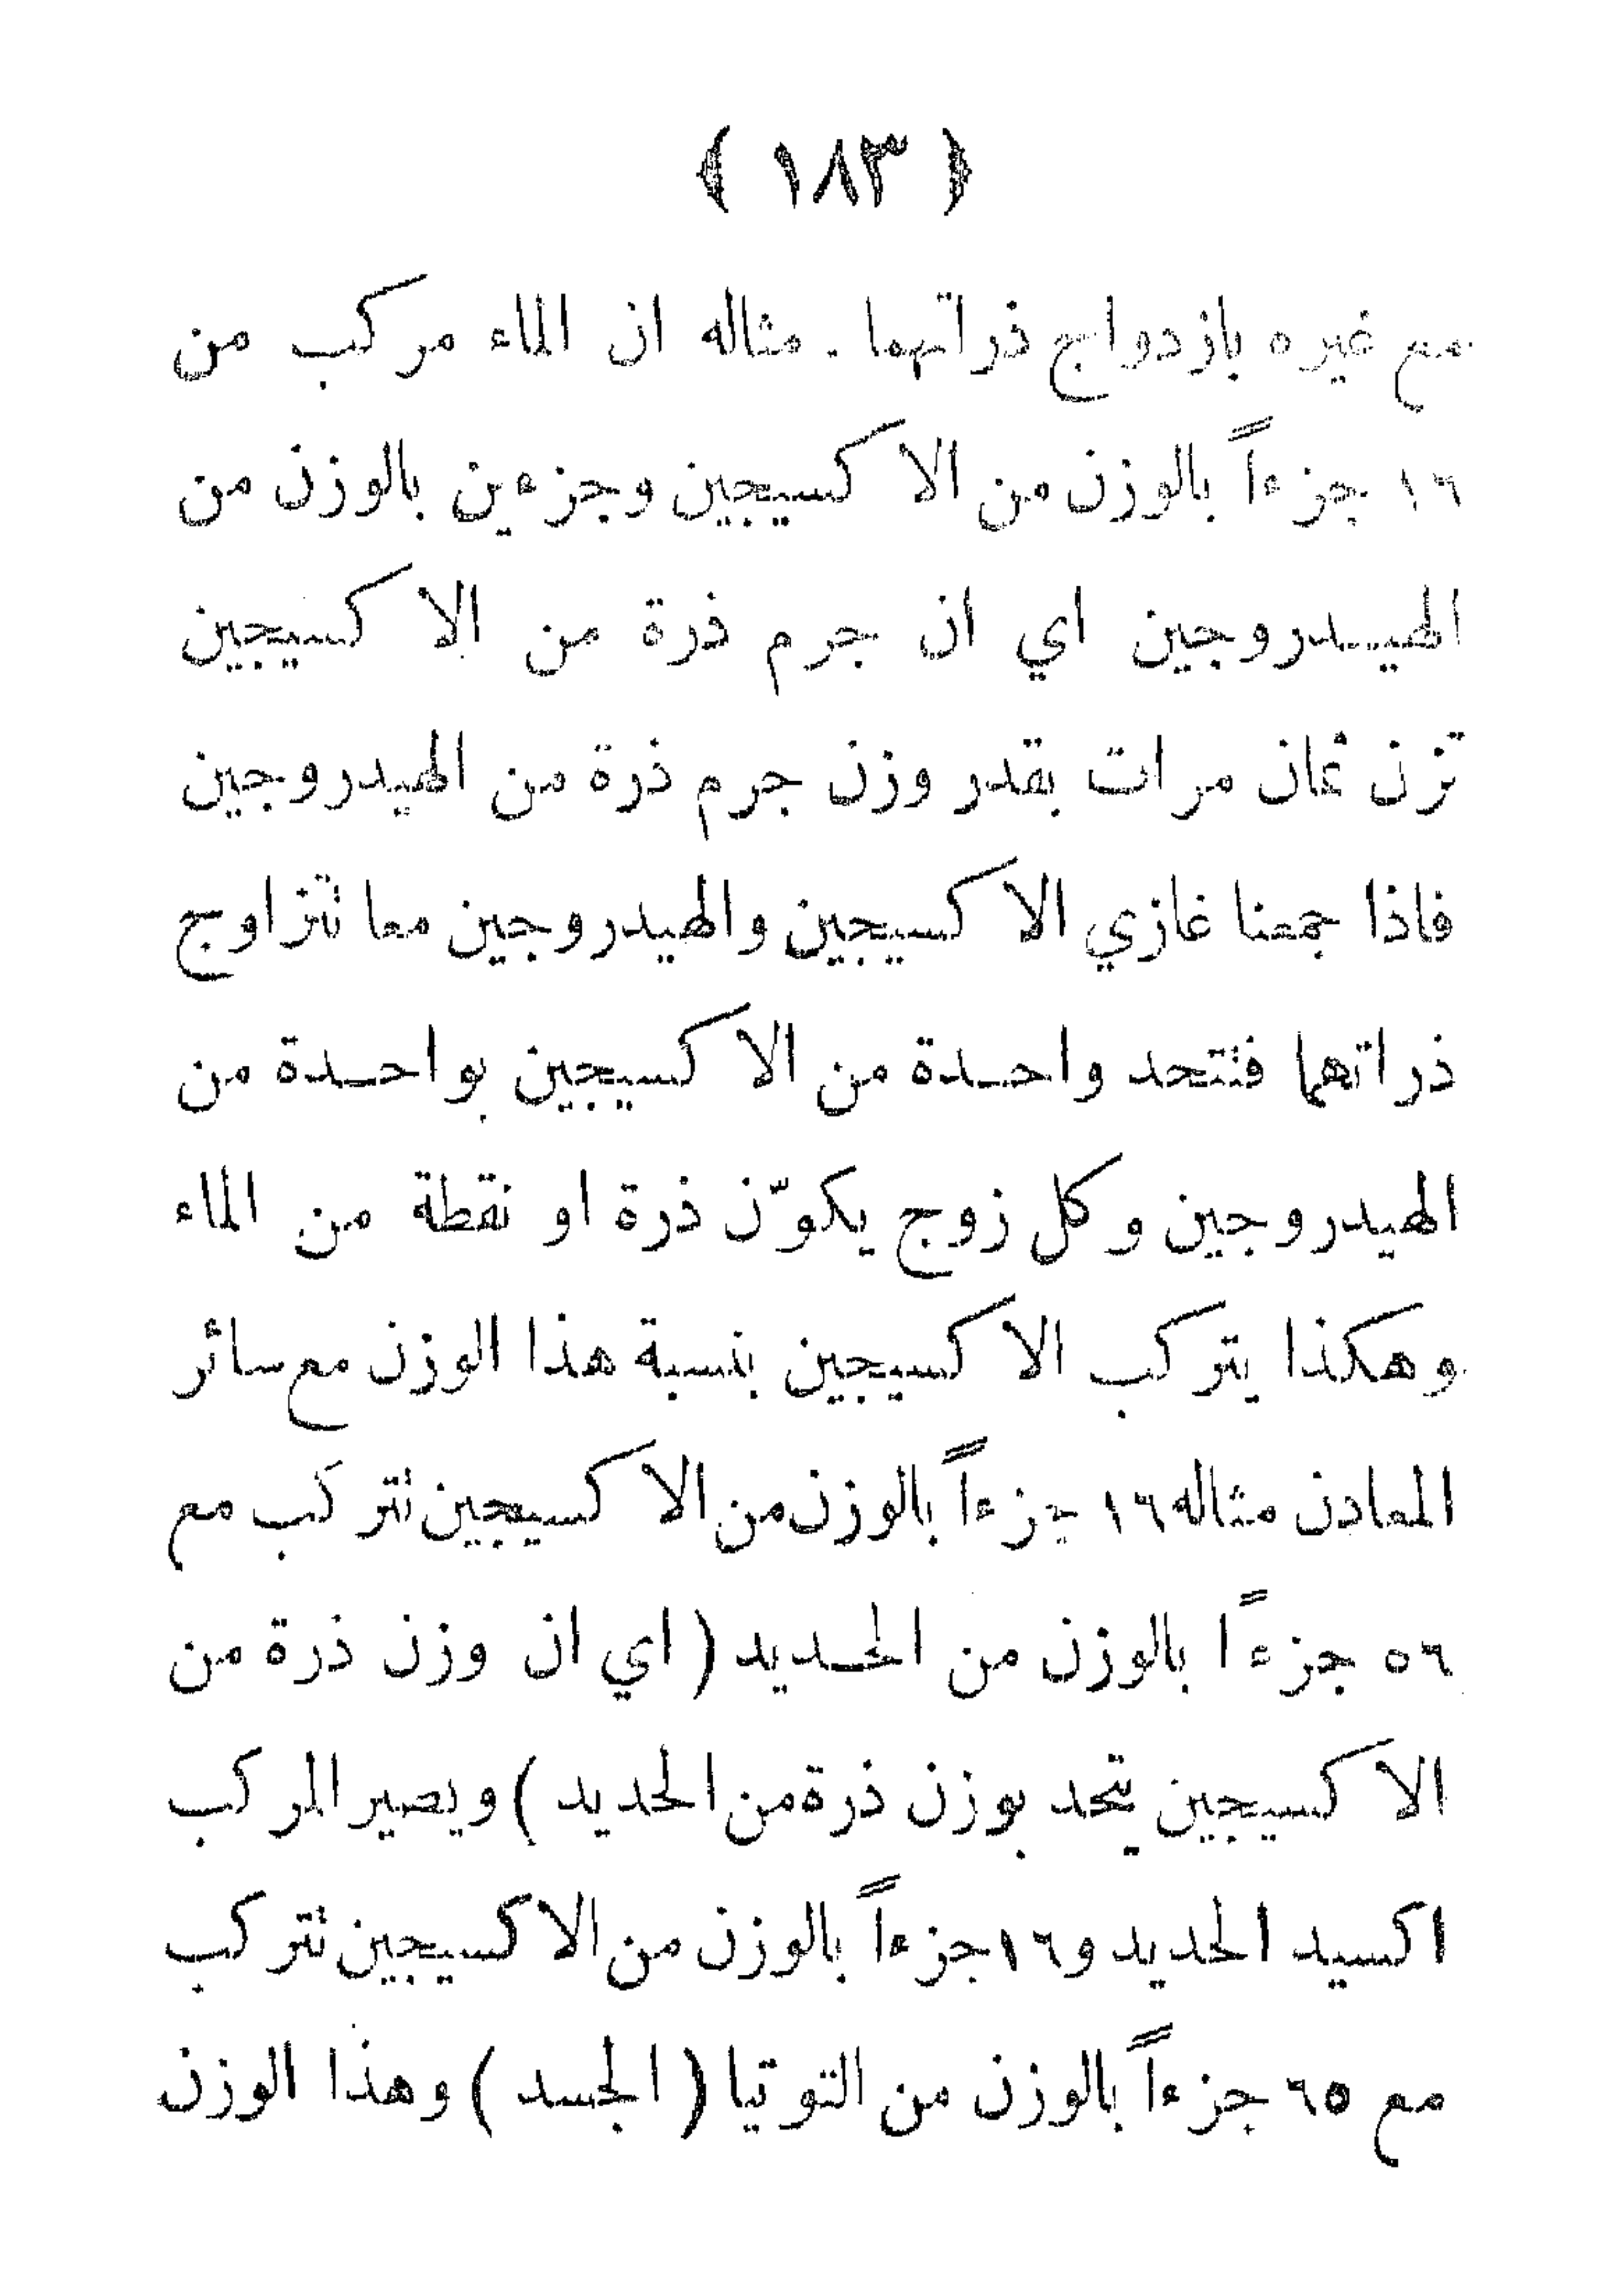 ﴿ ١٨٣ ﴾
مع غيره بازدواج ذراتهما . مثاله ان الماء مركب من
١٦ جزءاً بالوزن من الاكسيجين وجزءين بالوزن من
الهيدروجين اي ان جرم ذرة من الاكسيجين
تزن ثمان مرات بقدر وزن جرم ذرة من الهيدروجين
فاذا جمعنا غازي الاكسيجين والهيدروجين معا تتزاوج
ذراتهما فتتحد واحدة من الاكسيجين بواحدة من
الهيدروجين وكل زوج يكوّن ذرة او نقطة من الماء
وهكذا يتركب الاكسيجين بنسبة هذا الوزن مع سائر
المعادن مثاله ١٦ جزءاً بالوزن من الاكسيجين تتركب مع
٥٦ جزءًا بالوزن من الحديد ( اي ان وزن ذرة من
الاكسيجين يتحد بوزن ذرة من الحديد ) ويصير المركب
اكسيد الحديد و١٦ جزءاً بالوزن من الاكسيجين تتركب
مع ٦٥ جزءاً بالوزن من التوتيا ( الجسد ) وهذا الوزن